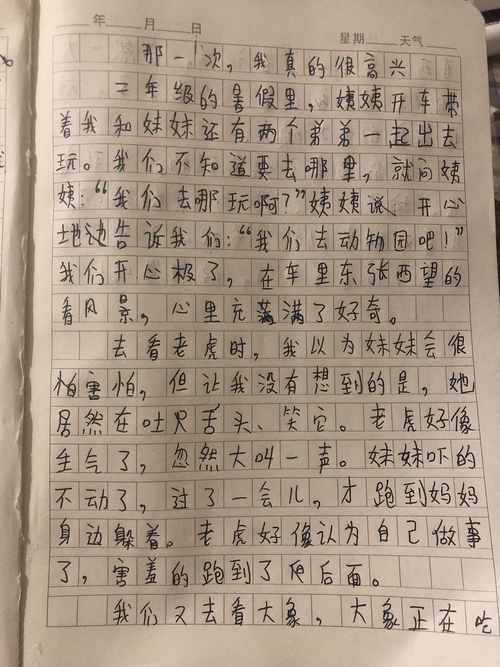 年 月 日 星期 天气
那一次，我真的很高兴
二年级的暑假里，姨姨开车带
着我和妹妹还有两个弟弟一起出去
玩。我们不知道要去哪里，就问姨
姨：“我们去哪玩啊？”姨姨说 开心
地地告诉我们：“我们去动物园吧！”
我们开心极了，在车里东张西望的
看风景，心里充满满了好奇。
去看老虎时，我以为妹妹会很
怕害怕，但让我没有想到的是，她
居然在吐只舌头、笑它。老虎好像
生气了，忽然大叫一声。妹妹吓的
不动了，过了一会儿，才跑到妈妈
身边躲着。老虎好像认为自己做事
了，害羞的跑到了 后面。
我们又去看大象，大象正在吃